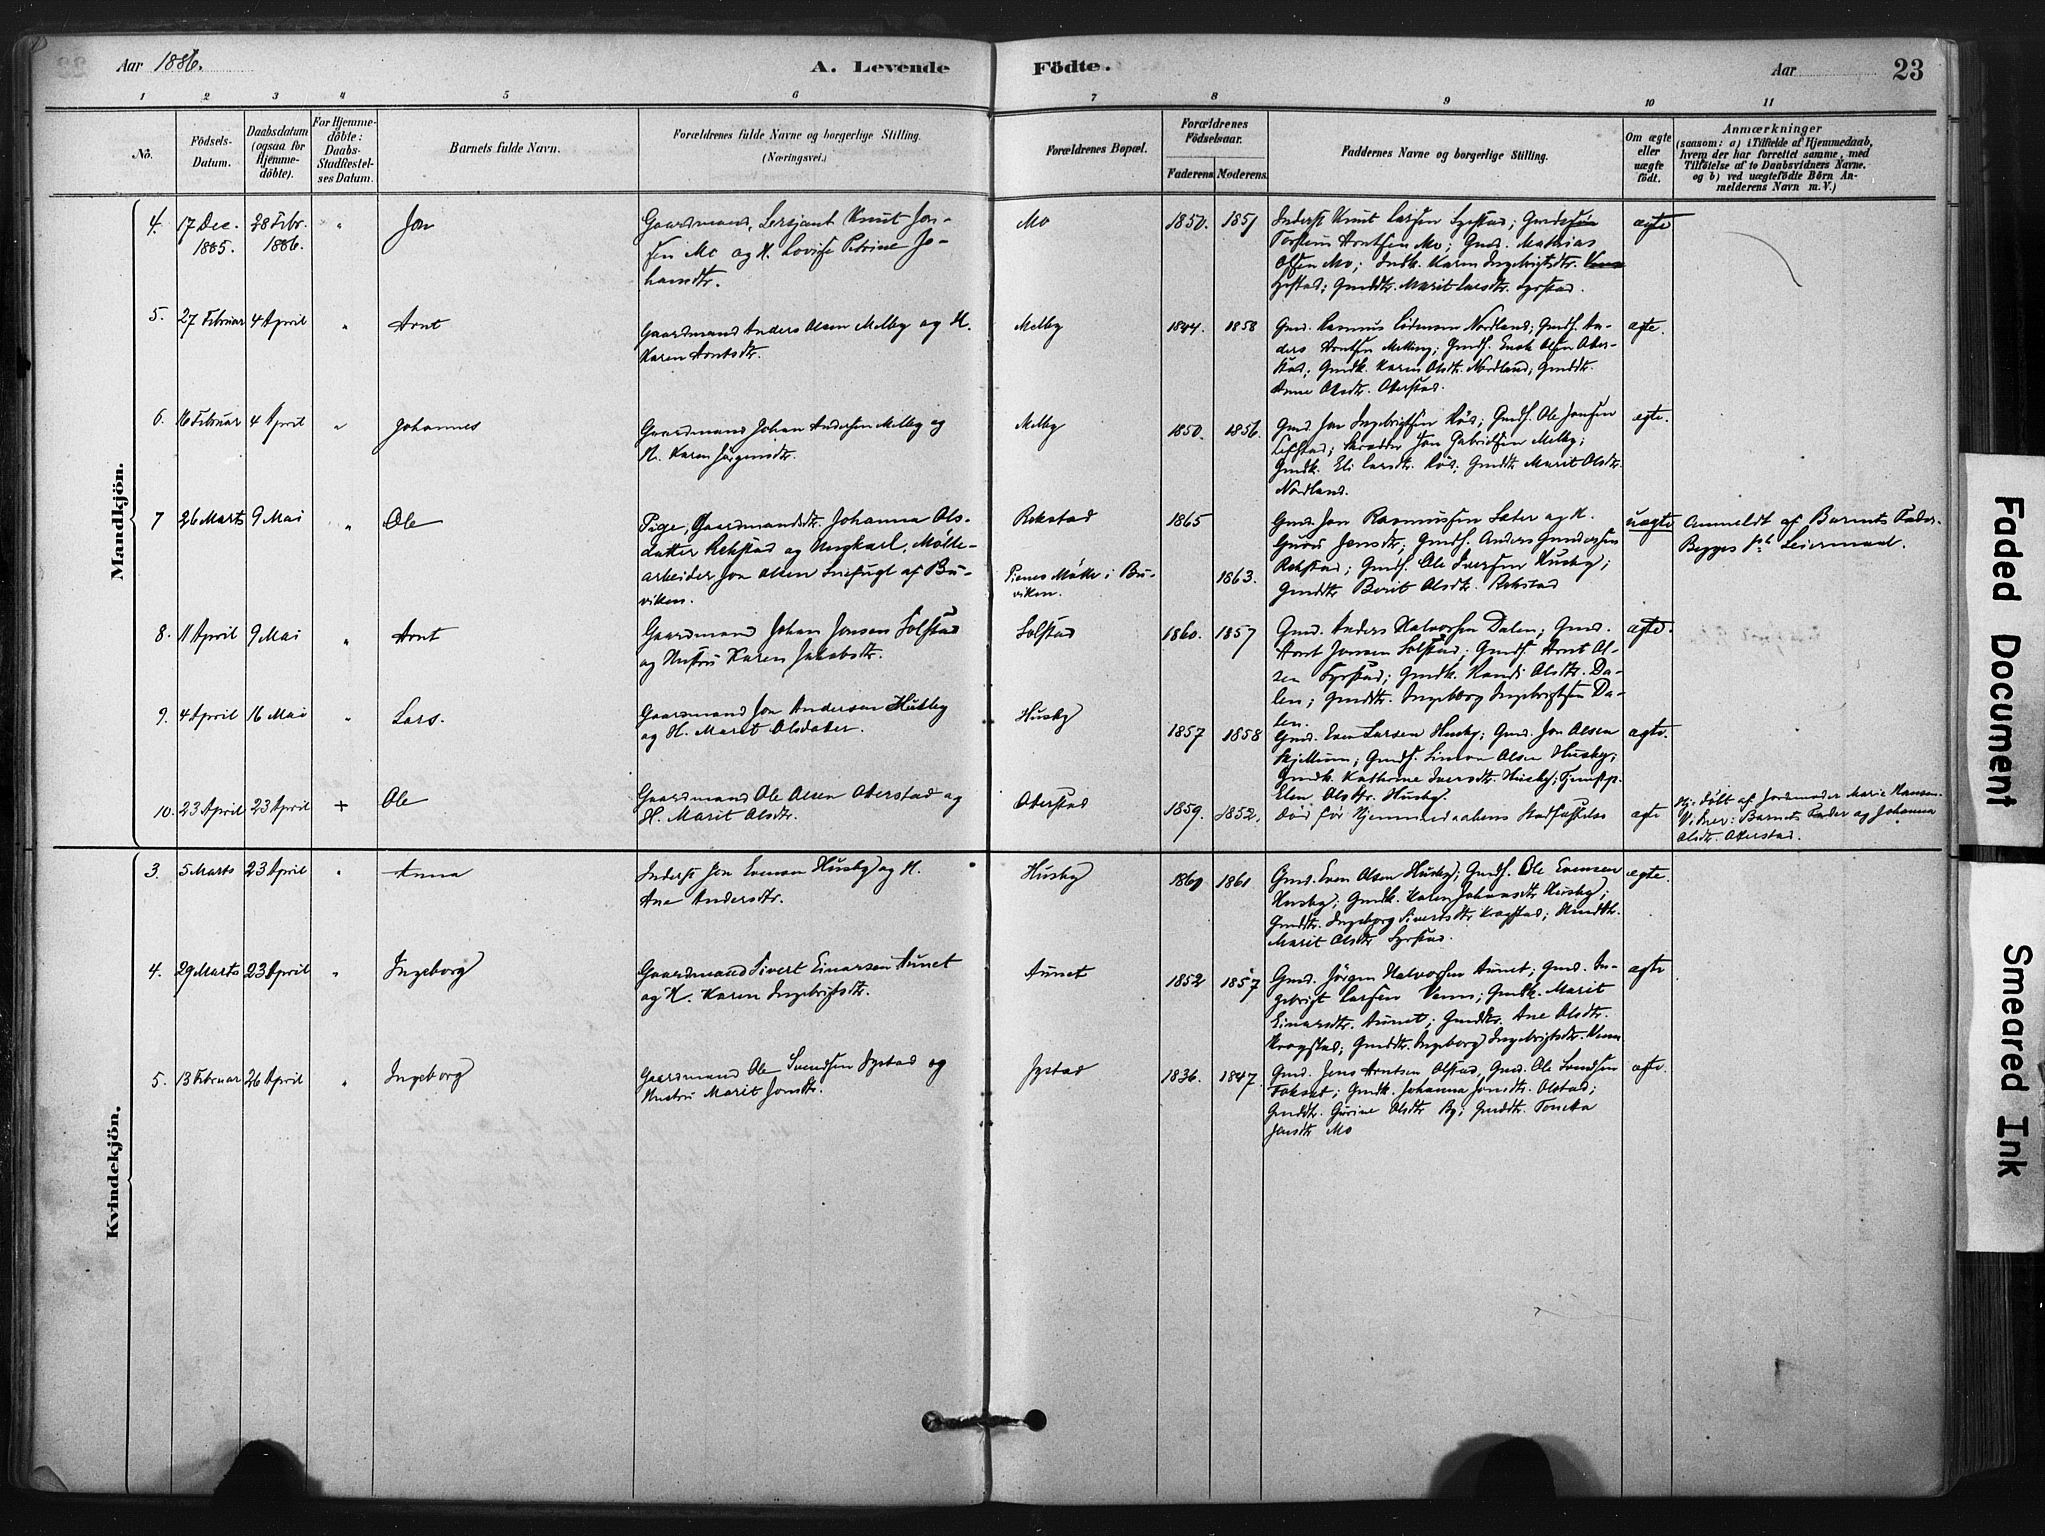 Aar 1886.
A. Levende Födte.
Aar 23
1 2 3 4 5 6 7 8 9 10 11
No.
Födsels-Datum.
Daabsdatum (ogsaa for Hjemme-döbte).
For Hjemme-döbte: Daabs-Stadfæstel-ses Datum.
Barnets fulde Navn.
Forældrenes fulde Navne og borgerlige Stilling. (Næringsvei.)
Forældrenes Bopæl.
Forældrenes Födselsaar.
Faderens Moderens.
Faddernes Navne og borgerlige Stilling.
Om ægte eller uægte født.
Anmærkninger
(saasom: a) i Tilfælde af Hjemmedaab,
hvem der har forrettet samme, med
Tilføielse af to Daabsvidners Navne.
og b) ved uægtefödte Börn An-
melderens Navn m. V.)
Mandkjön.
4. 17 Dec. 1885. 28 Febr. 1886. " Jon
Gaardmand, Sersjant Knut Jon-
sen Mo og H. Lovise Petrine Jo-
hansdtr.
Mo 1850. 1851
Inderst Knut Larsen Gustad;
Torstein Arntsen Mo; Gmd. Mathias
Olsen Mo; Indk. Karen Ingebrigtsdtr.
Marit Larsdtr.
ægte
5. 27 Februar 4 April " Arnt
Gaardmand Anders Olsen Melby og H.
Karen Arntsdtr.
Melby 1844. 1858
Gmd. Rasmus Nordland; Gmds. An-
ders Arntsen Melby; Gmds. Enok Olsen Ater-
stad; Gmdk. Karen Olsdtr. Nordland; Gmddtr.
Anne Olsdtr. Aterstad.
ægte.
6. 16 Februar 4 April " Johannes
Gaardmand Johan Andersen Melby og
H. Karen Jørgensdtr.
Melby 1850. 1856.
Gmd. Jon Ingebrigtsen Røs; Gmds. Ole Jonsen
Skrædder Jon Gabrielsen Melby;
Gmdk. Eli Larsdtr. Røs; Gmddtr. Marit Olsdtr.
Nordland.
ægte.
7 26 Marts 9 Mai " Ole
Pige, Gaardmandsdtr. Johanna Ols-
datter Rekstad og Ungkarl, Mølle-
arbeider Jon Olsen Snefugl af Bu-
viken.
Rekstad
Pienes Mølle i Bu-
viken.
1865
1863.
Gmd. Jon Rasmussen Sæter og H.
Guru Jonsdtr; Gmds. Anders Gundersen
Rekstad; Gmds. Ole Iversen Husby;
Gmddtr Berit Olsdtr. Rekstad
uægte
Anmeldt af Barnets Fader.
Begges 1ste Leiermaal.
8. 11 April 9 Mai " Arnt
Gaardmand Johan Jonsen Solstad
og Hustru Karen Jakobsdtr.
Solstad 1860. 1857
Gmd. Anders Halvorsen Dalen; Gmd.
Arnt Jonsen Solstad; Gmds. Arnt Ol-
sen Gyrstad; Gmdk. Randi Olsdtr. Da-
len; Gmddtr. Ingeborg Ingebrigtsen Da-
len.
ægte.
9. 4 April 16 Mai " Lars.
Gaardmand Jon Andersen Husby
og H. Marit Olsdatter.
Husby 1857 1858
Gmd. Even Larsen Husby; Gmd. Jon Olsen
Skjellum; Gmds. Simon Olsen Husby;
Gmdk. Kathrine Iversdtr. Husby; Tjenstp.
Elen Olsdtr. Husby.
ægte.
10. 23 April 23 April + Ole
Gaardmand Ole Olsen Aterstad og
H. Marit Olsdtr.
Aterstad 1859. 1852.
død før Hjemmedaabens Stadfæstelse
ægte
Hj. døbt af Jordmoder Marie Hansen.
Vidner: Barnets Fader og Johanna
Olsdtr. Aterstad.
Kvindekjön.
3. 5 Marts 23 April " Anna
Inderst Jon Evensen Husby og H.
Ane Andersdtr.
Husby 1860 1861
Gmd. Even Olsen Husby; Gmds. Ole Evensen
Husby; Gmdk. Karen Johansdtr Husby;
Gmddtr. Ingeborg Sivertsdtr Krogstad;
Marit Olsdtr
ægte.
4. 29 Marts 23 April " Ingeborg
Gaardmand Sivert Einarsen Aunet
og H. Karen Ingebrigtsdtr.
Aunet 1852 1857
Gmd. Jørgen Halvorsen Aunet; Gmd. In-
gebrigt Larsen Venn; Gmdk. Marit
Einarsdtr. Aunet; Gmddtr. Ane Olsdtr.
Krogstad; Gmddtr. Ingeborg Ingebrigtsdtr. Venn
ægte
5. 13 Februar 26 April " Ingeborg
Gaardmand Ole Svendsen Gystad og
Hustru Marit Jonsdtr.
Gystad 1836. 1847.
Gmd. Jens Arntsen Olstad, Gmd. Ole Svendsen
Gmdk. Johanna Jonsdtr. Olstad;
Gmddtr. Gurine Olsdtr By; Gmddtr.
Jonsdtr Mo
ægte.
Faded Document
Smeared Ink